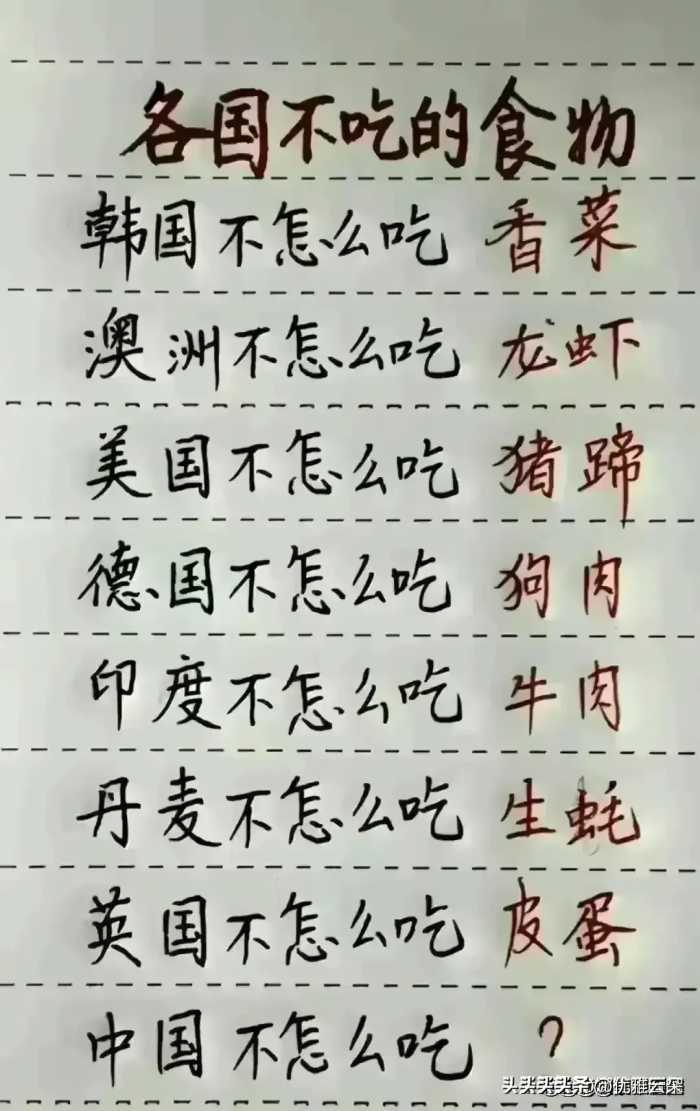 各国不吃的食物
韩国不怎么吃 香菜
澳洲不怎么吃 龙虾
美国不怎么吃 猪蹄
德国不怎么吃 狗肉
印度不怎么吃 牛肉
丹麦不怎么吃 生蚝
英国不怎么吃 皮蛋
中国不怎么吃 ?
头条 @优雅云朵